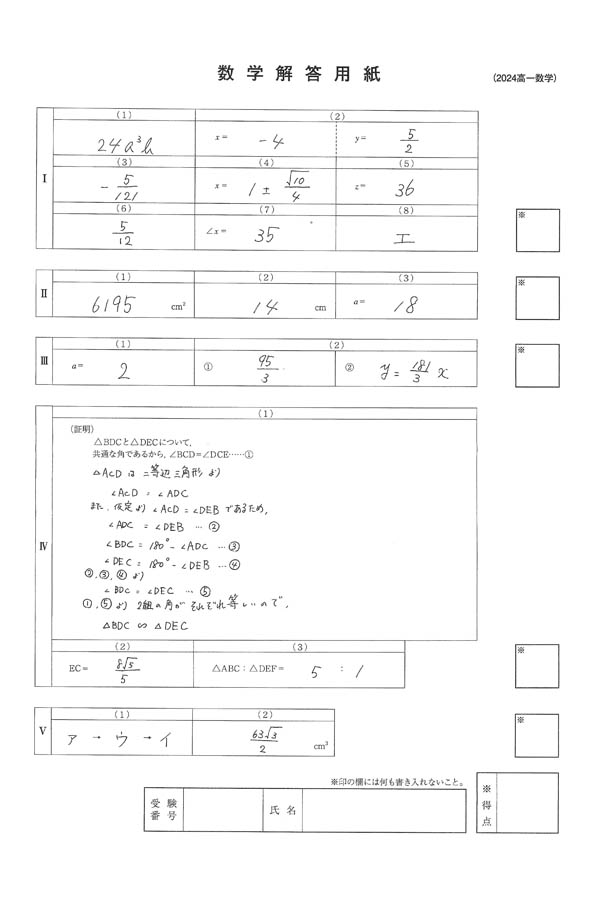 数学解答用紙
(2024高一数学)
Ⅰ
(1) (2)
24a³b x= -4 y= 5/2
(3) (4) (5)
-5/121 x= 1±√10/4 z= 36
(6) (7) (8)
5/12 ∠x= 35° エ
※
Ⅱ
(1) (2) (3)
6195 cm² 14 cm a= 18
※
Ⅲ
(1) (2)
a= 2 ① 95/3 ② y=181/3 x
※
Ⅳ
(1)
(証明)
△BDCと△DECについて,
共通な角であるから, ∠BCD=∠DCE……①
△ACD は 二等辺三角形 より
∠ACD = ∠ADC
また, 仮定より ∠ACD = ∠DEB であるため,
∠ADC = ∠DEB … ②
∠BDC = 180° - ∠ADC … ③
∠DEC = 180° - ∠DEB … ④
②,③,④ より
∠BDC = ∠DEC … ⑤
①,⑤ より 2組の角が それぞれ 等しいので,
△BDC ∽ △DEC
(2) (3)
EC= 8√5/5 △ABC:△DEF= 5 : 1
※
Ⅴ
(1) (2)
ア → ウ → イ 63√3/2 cm³
※
※印の欄には何も書き入れないこと。
受験番号 氏名
※得点